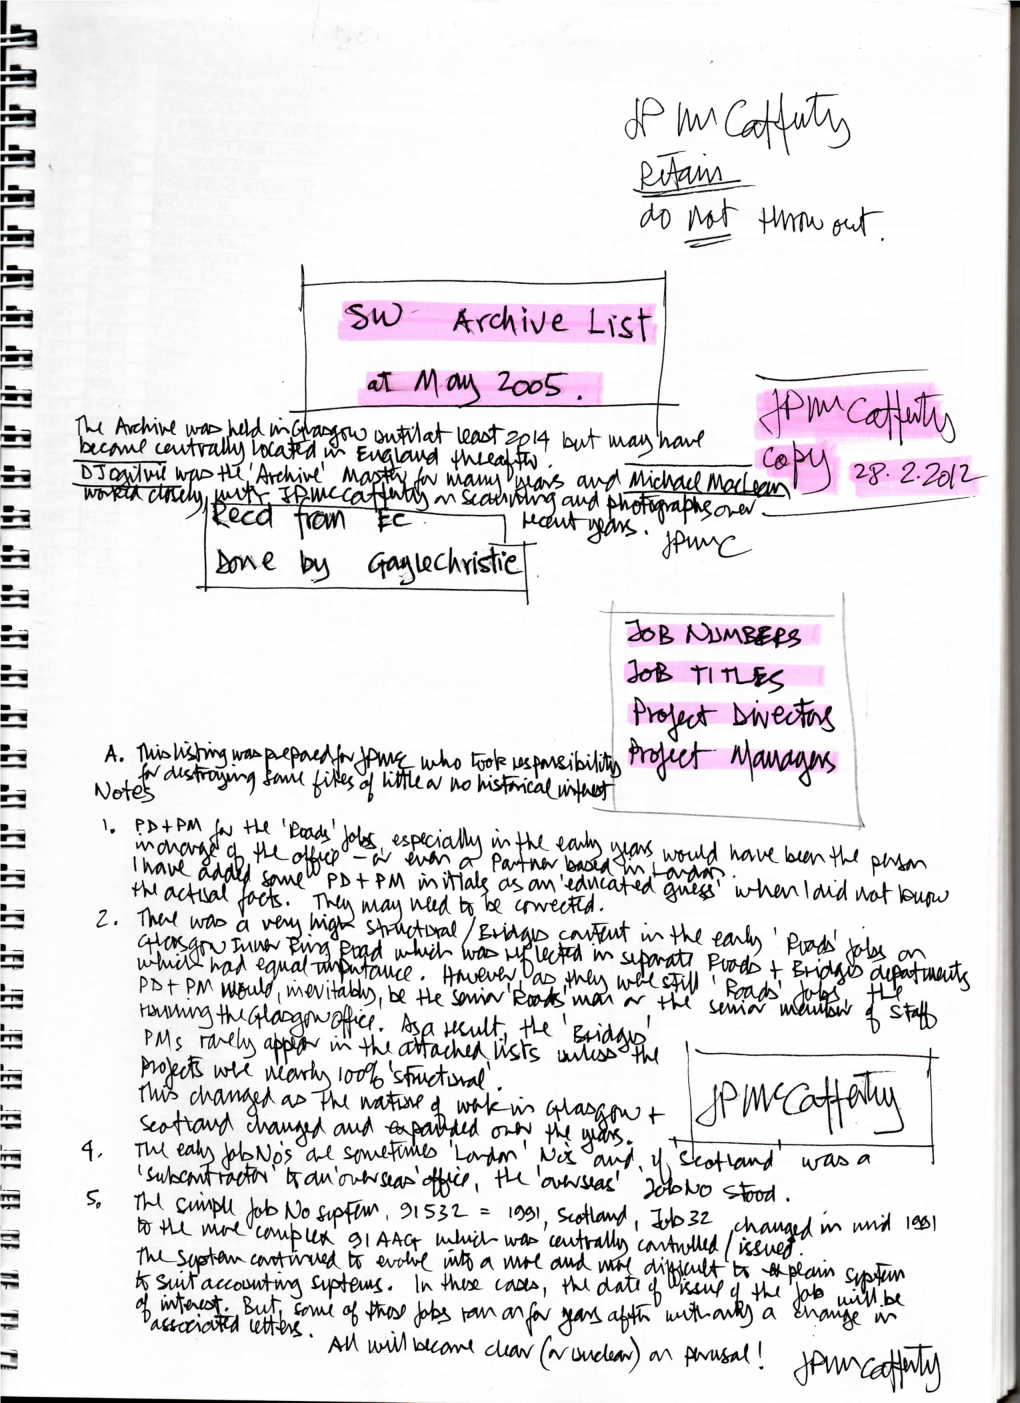 JP McCafferty
Retain
do not throw out.
SW Archive List
at May 2005.
The Archive was held in Glasgow until at least 2014 but may have
become centrally located in England thereafter.
DJ Ogilvie was the 'Archive' Master for many years and Michael MacLean
worked closely with JPMcCafferty on scanning and photographs over
recent years.
JPMC
JPMcCafferty
copy 28.2.2012
Recd from EC
Done by Gayle Christie
JOB NUMBERS
JOB TITLES
Project Directors
Project Managers
A. This listing was prepared for JPMC who took responsibility
for destroying some files of little or no historical interest
Notes
1. PD+PM for the 'Roads' Jobs, especially in the early years would have been the person
in charge of the office - or even a Partner based in London.
I have added some PD+PM initials as an 'educated guess' when I did not know
the actual facts. They may need to be corrected.
2. There was a very high Structural/Bridges content in the early 'Roads' jobs on
Glasgow Inner Ring Road which was reflected in separate Roads + Bridges departments
which had equal importance. However, as they were still 'Roads' Jobs, the
PD+PM would, inevitably, be the senior 'Roads' man or the senior member of Staff
running the Glasgow office. As a result, the 'Bridges'
PMs rarely appear in the attached lists unless the
Projects were nearly 100% 'structural'.
This changed as the nature of work in Glasgow +
Scotland changed and expanded over the years.
JPMcCafferty
4. The early Job No's are sometimes 'London' No's and, if 'Scotland' was a
'subcontractor' to an 'overseas' office, the 'overseas' Job No stood.
5. The simple Job No system, 91532 = 1991, Scotland, Job 32 changed in mid 1991
to the more complex 91AACt which was centrally controlled/issued.
The system continued to evolve into a more and more difficult to explain system
to suit accounting systems. In these cases, the date of issue of the Job will be
of interest. But, some of those Jobs ran on for years after with only a change in
associated letters.
All will become clear (or unclear) on perusal!
JPMcCafferty